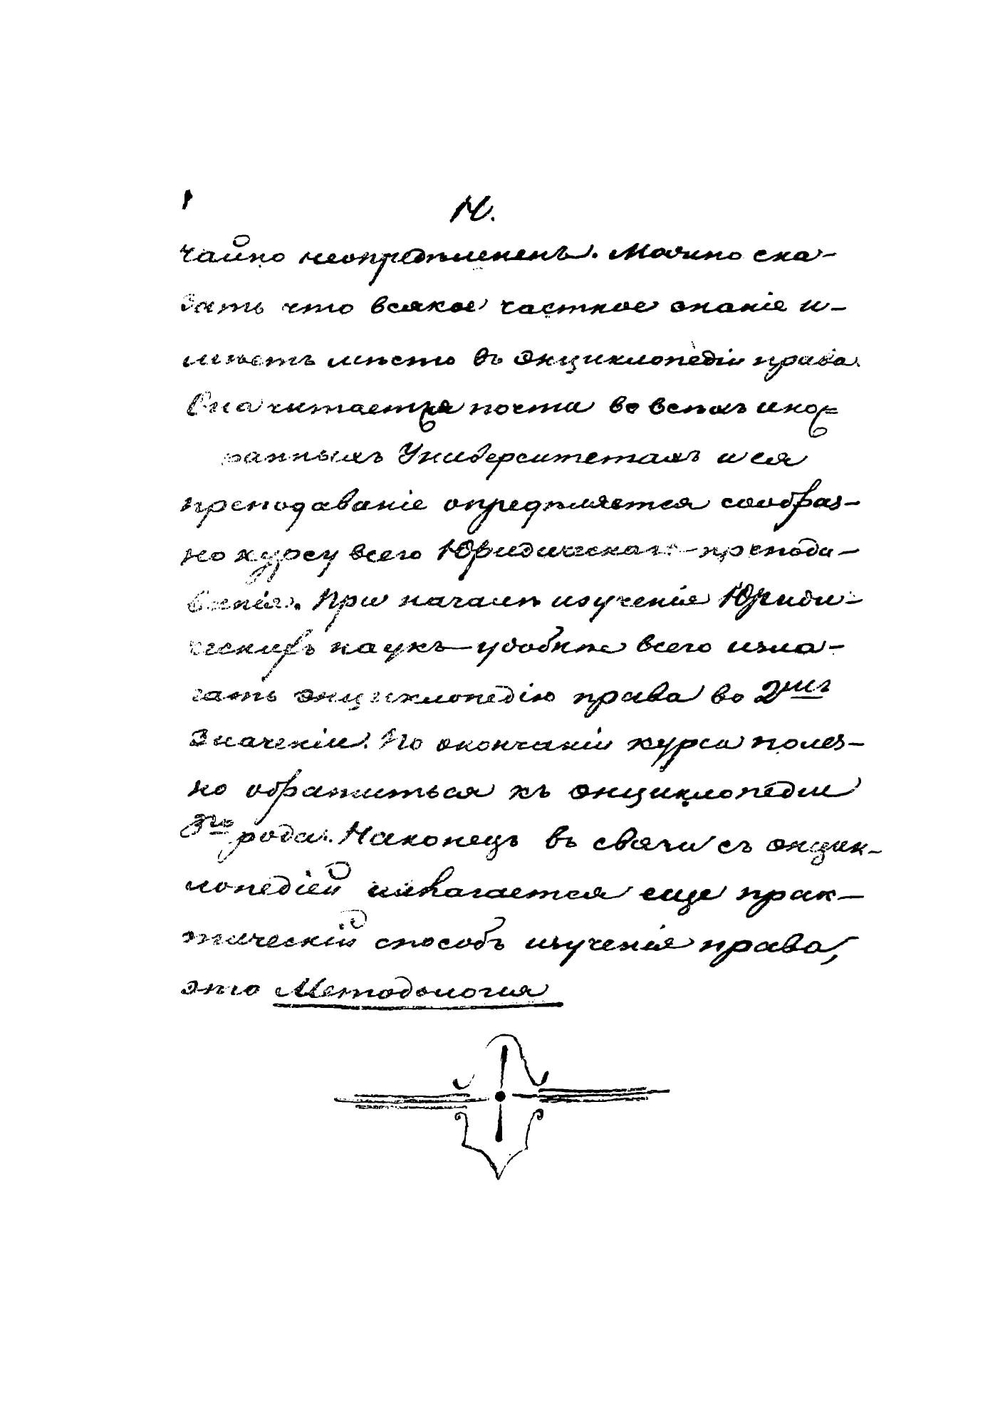 14.
чайно неопредѣлененъ. Можно ска-
зать что всякое частное знаніе и-
мѣетъ мѣсто въ энциклопедіи права.
Она читается почти во всѣхъ иност-
ранныхъ Университетахъ и ея
преподаваніе опредѣляется сообраз-
но курсу всего Юридическаго препода-
ванія. При началѣ изученія Юриди-
ческихъ наукъ удобнѣе всего изла-
гать энциклопедію права во 2мъ
значеніи. По окончаніи курса полез-
но обратиться къ энциклопедіи
3го рода. Наконецъ въ связи съ энцик-
лопедіей излагается еще прак-
тическій способъ изученія права,
это Методологія